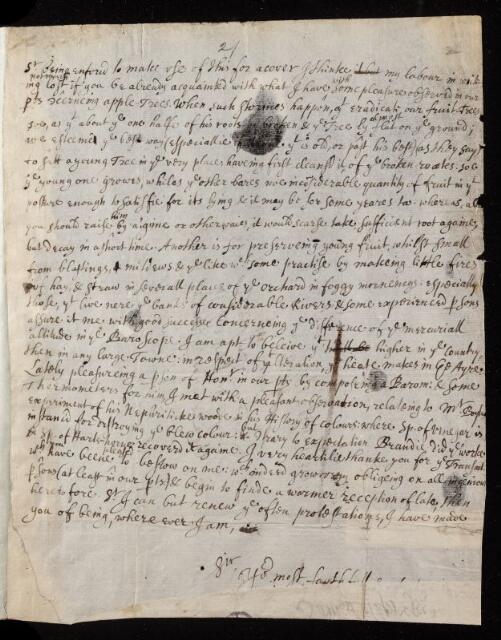 2/
Sr Being enforc'd to make use of this for a cover I thinke it but my labour in writ-
not much with
ing lost if you be already acquainted with what I have some pleasure observed in our
pts concerning apple Trees. When such stormes happen, yt eradicate our fruit Trees
so yt about ye one halfe of his roots broken & ye Tree ly flat on ye ground;
almost
we esteeme ye best way (especialie ye is old, or past his best) as they say
to sett a young Tree in ye very place, haveing first cleans'd it of ye broken rootes. soe
ye young one grows, whiles ye other bares no inconsiderable quantity of fruit in yt
posture enough to satisfie for its lying & it may be for some yeares too. whereas, if
you should raise him by a gine or otherwaies, it would scarse take sufficient root againe
but decay in a short time. Another is for preserveing young fruit, whilst small
from blastings, mildews & ye like wch some practise by makeing little fires
of hay & straw in severall places of ye orchard in foggy morneings: especially
those, yt live nere ye banks of considerable Rivers & some experienced psons
assure it me with good successe. Concerning ye difference of ye mercuriall
altitudes in ye Baroscope. I am apt to beleive it must be higher in ye Country,
then in any large Towne in respect of ye alteration, yt heate makes in Ayre.
Lately pleasureing a pson of Honr in our pts by componeing Barom: & some
Thirmometers for him, I met with a pleasant observation, relateing to Mr Boyles
experiment of his Nephritike wood in his History of colours: where Sp of vinegar is
instanc'd for distroying ye blew colour: but contrary to expectation Brandie did ye worke
& Sp of Harts-horne recovered it againe. I very heartilie thanke you for ye Transact
wch have beene pleased to bestow on me: wch indeed grow very obliging on all ingenious
psons (at least in our pts) & begin to finde a warmer reception of late, then
heretofore. Sr I can but renew ye often protestations, I have made
you of being, where ever I am,
Sir
Yor most faithfull